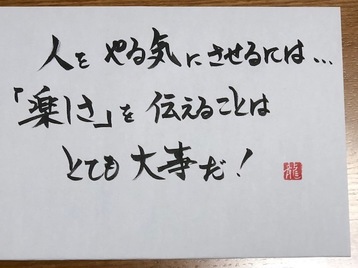 人をやる気にさせるには…
「楽しさ」を伝えることは
とても大事だ!